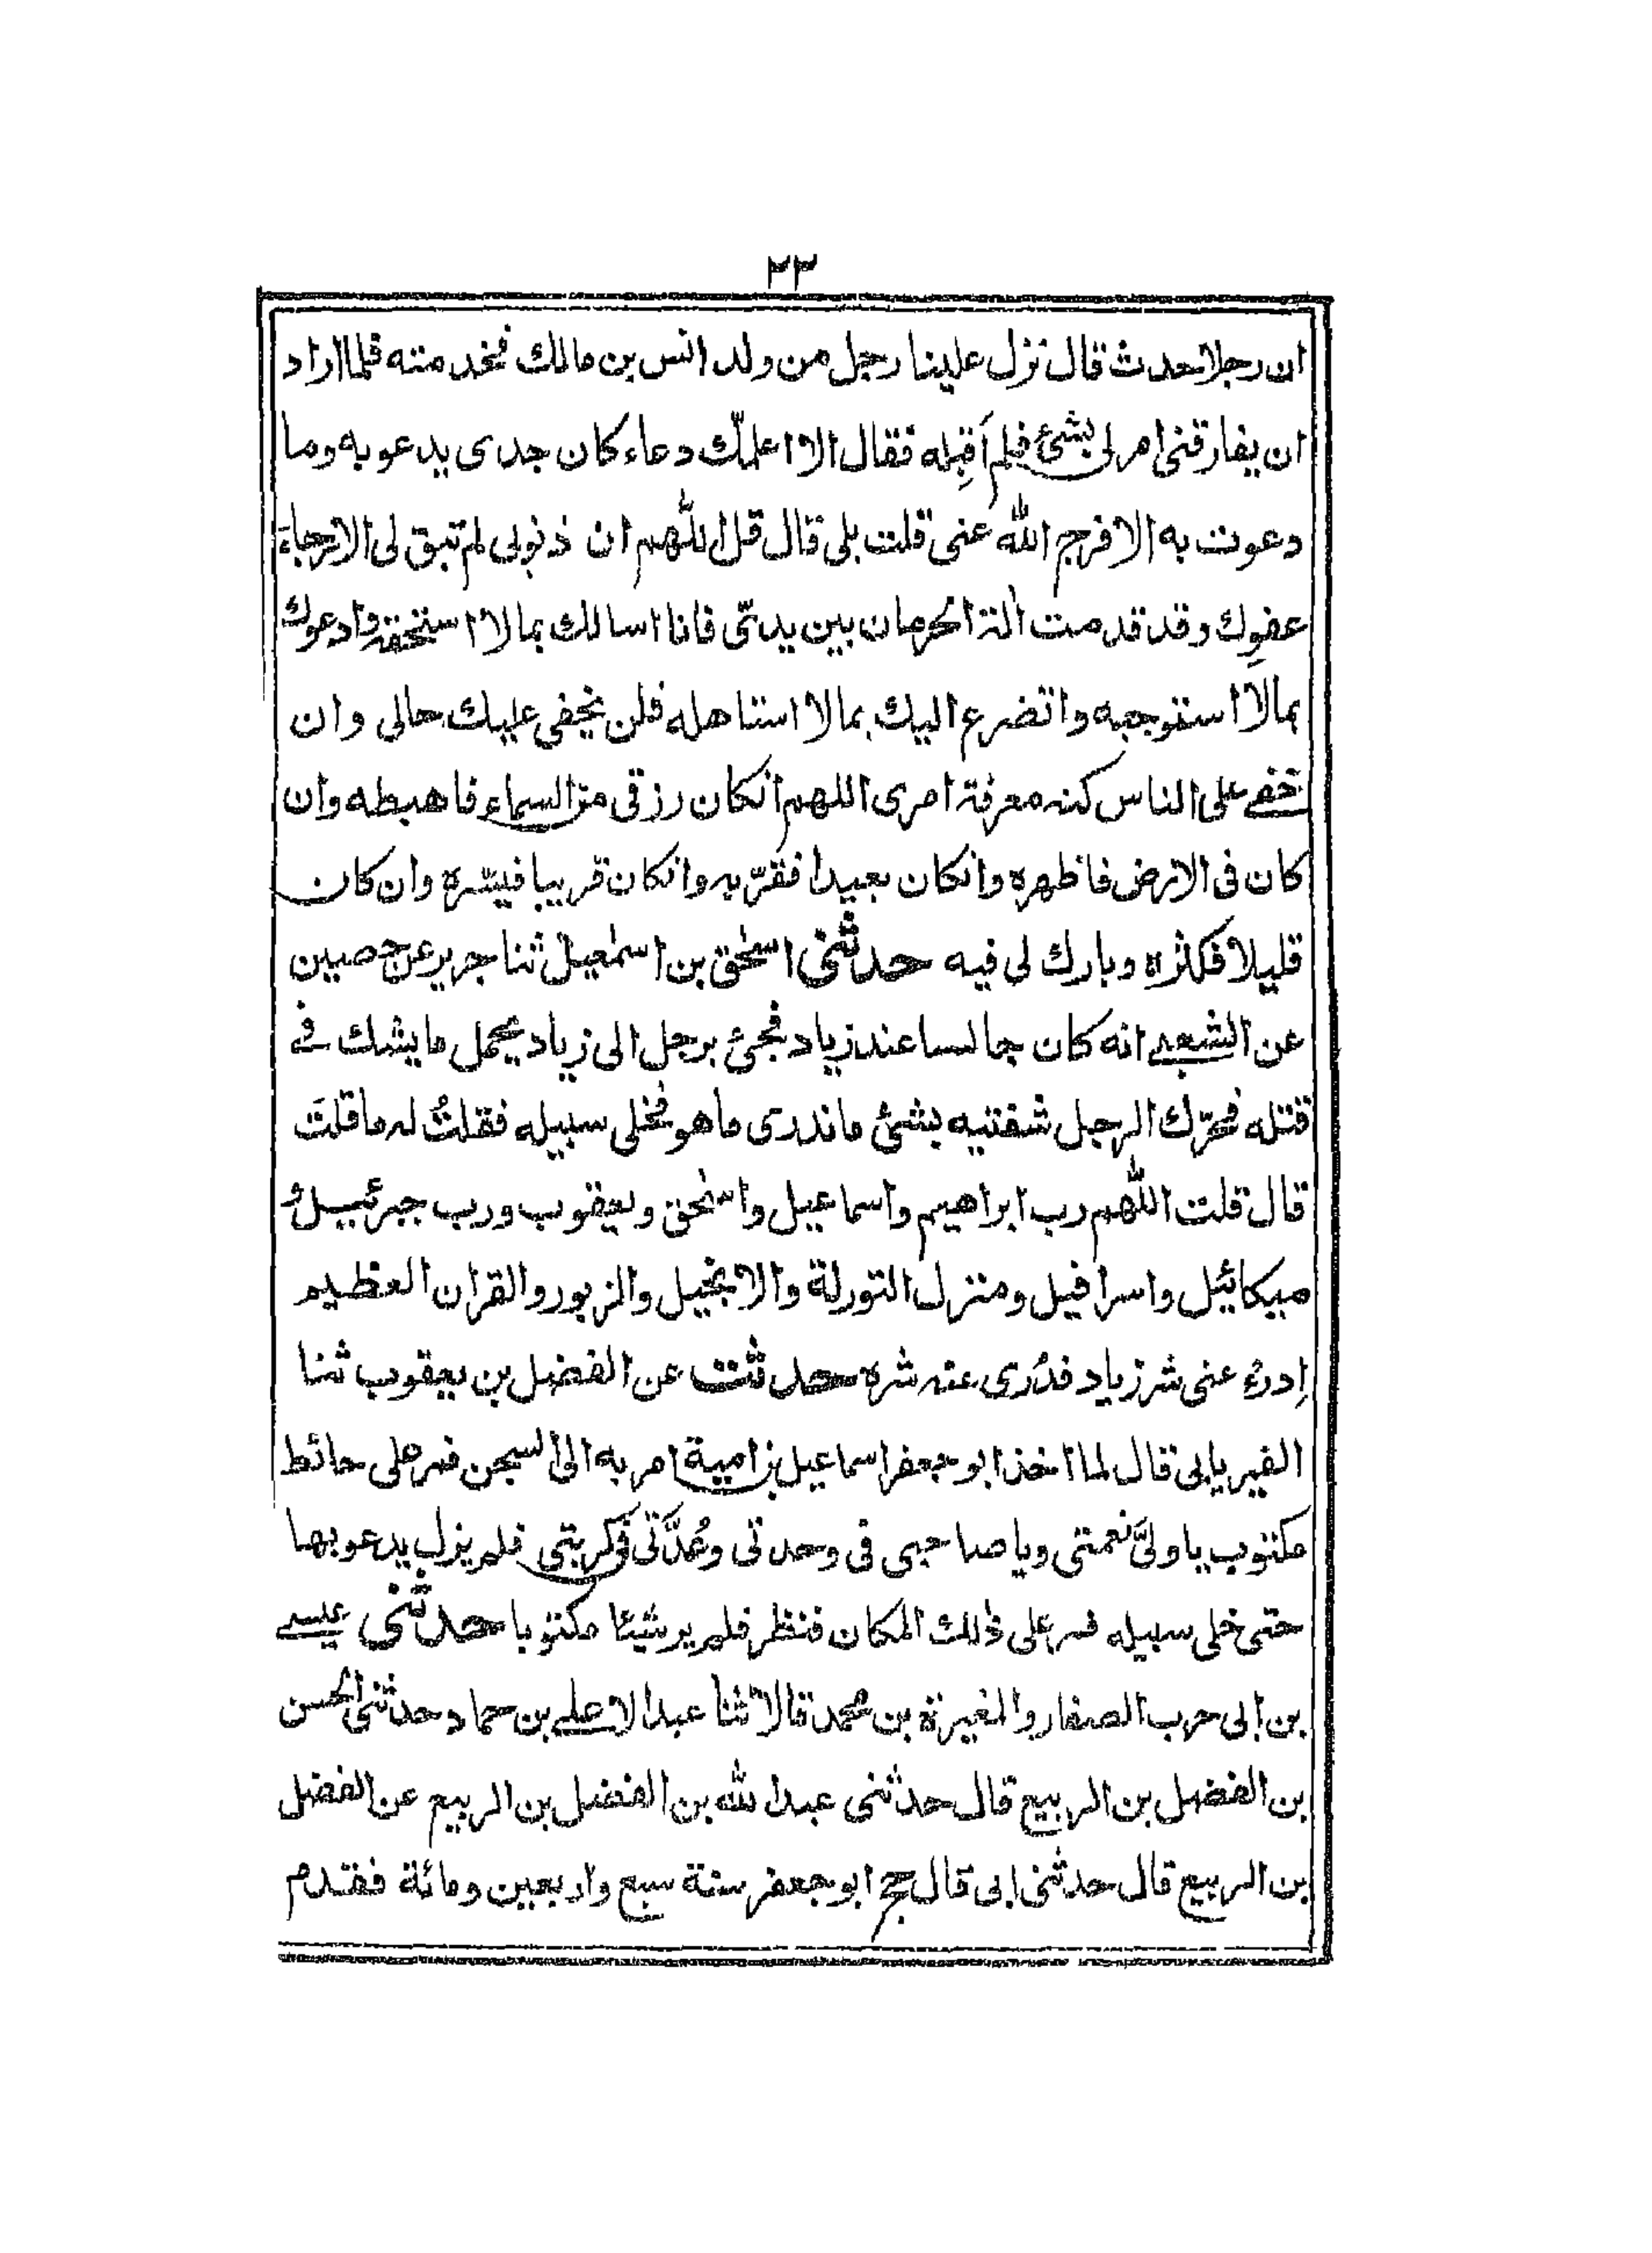 ٢٣
ان رجلا حدث قال نزل علينا رجل من ولد انس بن مالك فخدمته فلما اراد
ان يفارقنى امر لى بشئ فلم اَقبِله فقال الا اعلمّك دعاء كان جدى يدعو به وما
دعوت به الا فرج الله عنى قلت بلى قال قل اللهم ان ذنوبى لم تبق لى الا رجاءَ
عفوِك وقد قدمت اٰلة الحرمان بين يدىّ فانا اسالك بما لا استحقه وادعوك
بما لا استوجبه واتضرع اليك بما لا استاهله فلن يخفى عليك حالى وان
خفى على الناس كنه معرفة امرى اللهم انكان رزقى من السماء فاهبطه وان
كان فى الارض فاظهره وانكان بعيدا فقرّبه وانكان قريبا فيسّره وان كان
قليلا فكثره وبارك لى فيه حدثنى اسحٰق بن اسمٰعيل ثنا جرير عن حصين
عن الشعبى انه كان جالسا عند زياد فجئ برجل الى زياد يحمل ما يشك فى
قتله فحرّك الرجل شفتيه بشئ ما ندرى ما هو فخلى سبيله فقلتُ له ما قلتَ
قال قلت اللهم رب ابراهيم واسماعيل واسحٰق ويعقوب ورب جبرئيل و
ميكائيل واسرافيل ومنزل التورٰىة والانجيل والزبور والقران العظيم
اِدرء عنى شر زياد فدُرى عنه شره حدثت عن الفضل بن يعقوب ثنا
الفيريابى قال لما اخذ ابو جعفر اسماعيل بن امية امر به الى السجن فمر على حائط
مكتوب يا ولىَّ نعمتى ويا صاحبى فى وحدتى وعُدَّتى فى كربتى فلم يزل يدعو بها
حتى خلى سبيله فمر على ذلك المكان فنظر فلم ير شيئا مكتوبا حدثنى عيسى
بن ابى حرب الصفار والمغيرة بن محمد قالا ثنا عبد الاعلى بن حماد حدثنى الحسن
بن الفضل بن الربيع قال حدثنى عبد الله بن الفضل بن الربيع عن الفضل
بن الربيع قال حدثنى ابى قال حج ابو جعفر سنة سبع واربعين ومائة فقدم